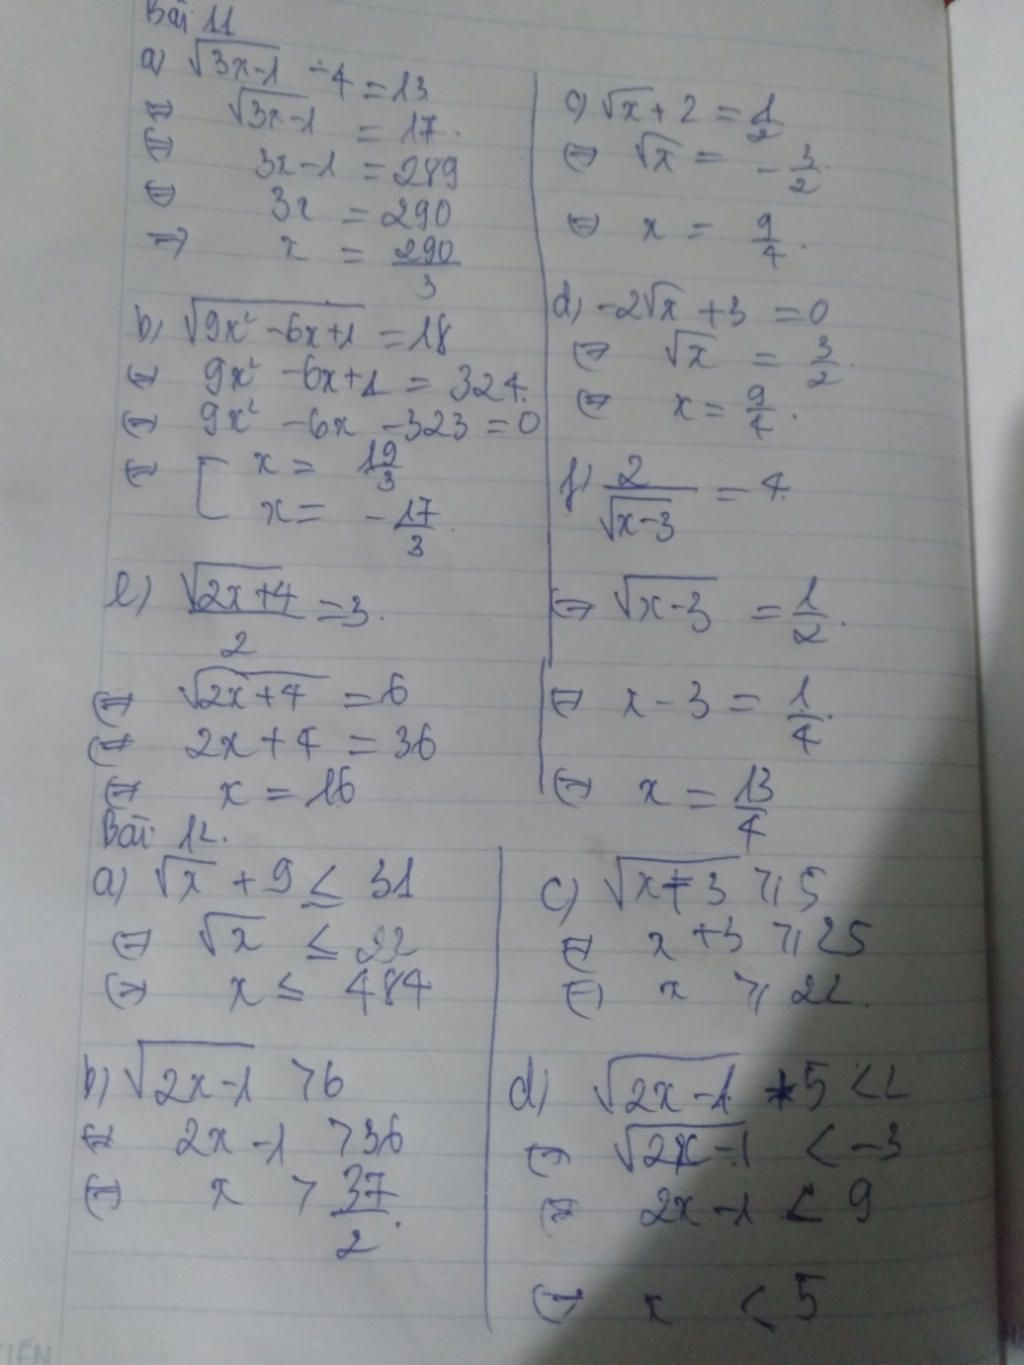 Bài 11
a) √(3x-1) - 4 = 13
⇔ √(3x-1) = 17.
⇔ 3x-1 = 289
⇔ 3x = 290
⇒ x = 290/3
b) √(9x² -6x+1) = 18
⇔ 9x² -6x+1 = 324.
⇔ 9x² -6x -323 = 0
⇔ [ x = 19/3
x = -17/3.
c) √x + 2 = 1/2
⇔ √x = -3/2.
⇔ x = 9/4.
d) -2√x + 3 = 0
⇔ √x = 3/2.
⇔ x = 9/4.
e) √(2x+4)/2 = 3.
⇔ √(2x+4) = 6
⇔ 2x+4 = 36
⇔ x = 16
f) 2/√(x-3) = 4.
⇔ √(x-3) = 1/2.
⇔ x-3 = 1/4.
⇔ x = 13/4
Bài 12.
a) √x + 9 ≤ 31
⇔ √x ≤ 22
⇔ x ≤ 484
b) √(2x-1) > 6
⇔ 2x-1 > 36
⇔ x > 37/2.
c) √(x+3) ≥ 5
⇔ x+3 ≥ 25
⇔ x ≥ 22.
d) √(2x-1) + 5 < 2
⇔ √(2x-1) < -3
⇔ 2x-1 < 9
⇔ x < 5
TIẾN